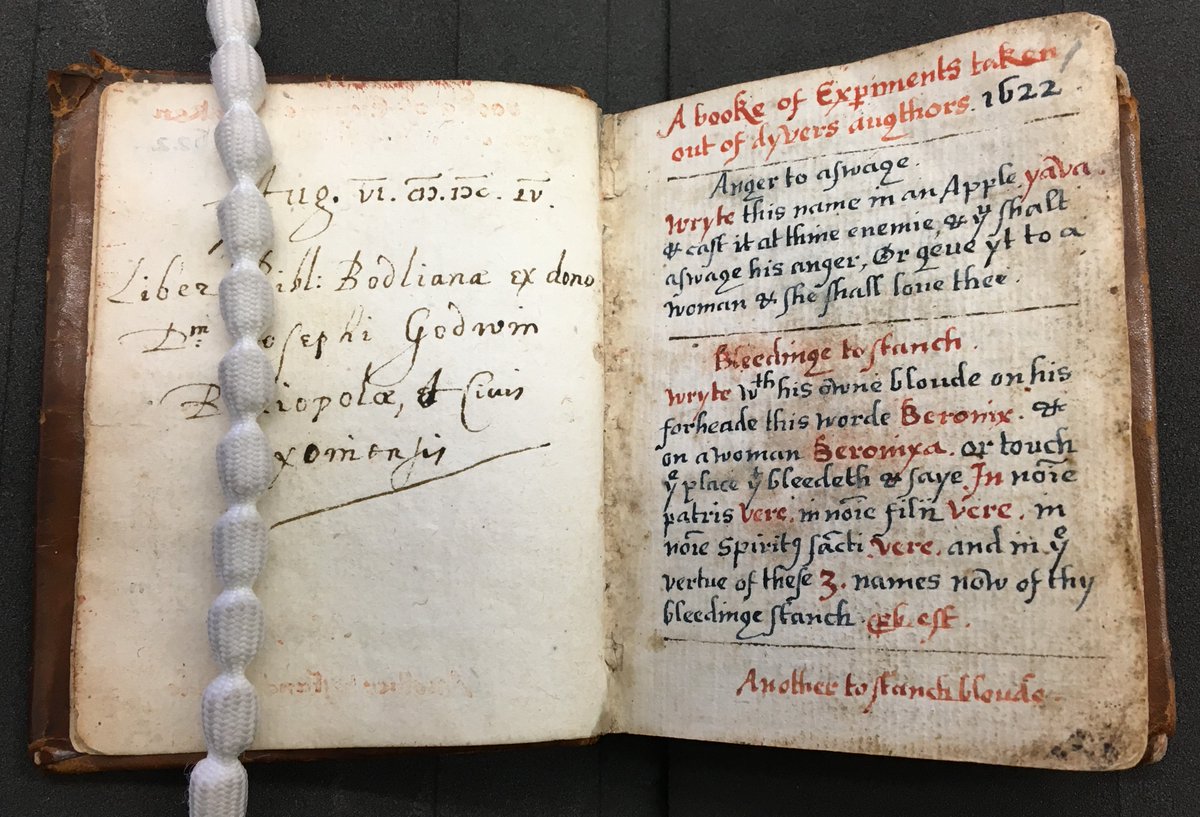 Aug. VI. MDC. IV.
Liber Bibl: Bodlianæ ex dono
Dm̃ Josephi Godwin
Bibliopolæ, & Civis
Oxoniensis
A booke of Expiments taken
out of dyvers augthors. 1622
Anger to aswage.
Wryte this name in an Apple yāva.
& cast it at thine enemie, & yu shalt
aswage his anger, Or geve yt to a
woman & she shall love thee.
Bleedinge to stanch.
Wryte wth his owne bloude on his
forheade this worde Beronix. &
on a woman Beronixa. or touch
ye place yt bleedeth & saye In noīe
patris vere. in noīe filii vere. in
noīe Spiritꝯ sācti vere. and in ye
vertue of these 3. names now of thy
bleedinge stanch. ꝓb. est.
Another to stanch bloude